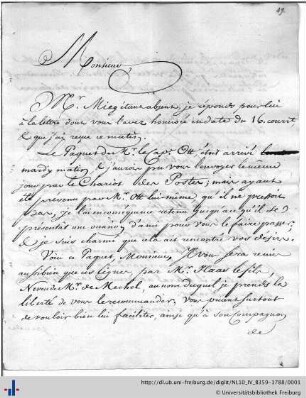 Monsieur
Mr. Mieg étant absent, je réponds pour lui
à la lettre dont vous l'avez honoré en date du 16. court
& que j'ai reçue ce matin.
Le Paquet de Mr. le Capt. Ott étoit arrivé
mardy matin & j'aurai pu vous l'envoyer le même
jour par le Chariot de Poste; mais ayant
été prevenu par Mr. Ott lui même qu'il ne pressoit
pas, je l'ai en conséquence retenu jusqu'à ce qu'il se
présentat une occasion pour vous le faire passer;
& je suis charmé que cela ait rencontré vos désirs.
Ce Paquet, Monsieur, Vous sera remis
par Mr. Haas le fils,
Neveu de Mr. de Mechel, au nom duquel je prends la
liberté de vous le recommander. Vous priant surtout
de vouloir bien lui faciliter, ainsi qu'à son Compagnon,
http://dl.ub.uni-freiburg.de/diglit/NL10_IV_8359-1788/0001
© Universitätsbibliothek Freiburg